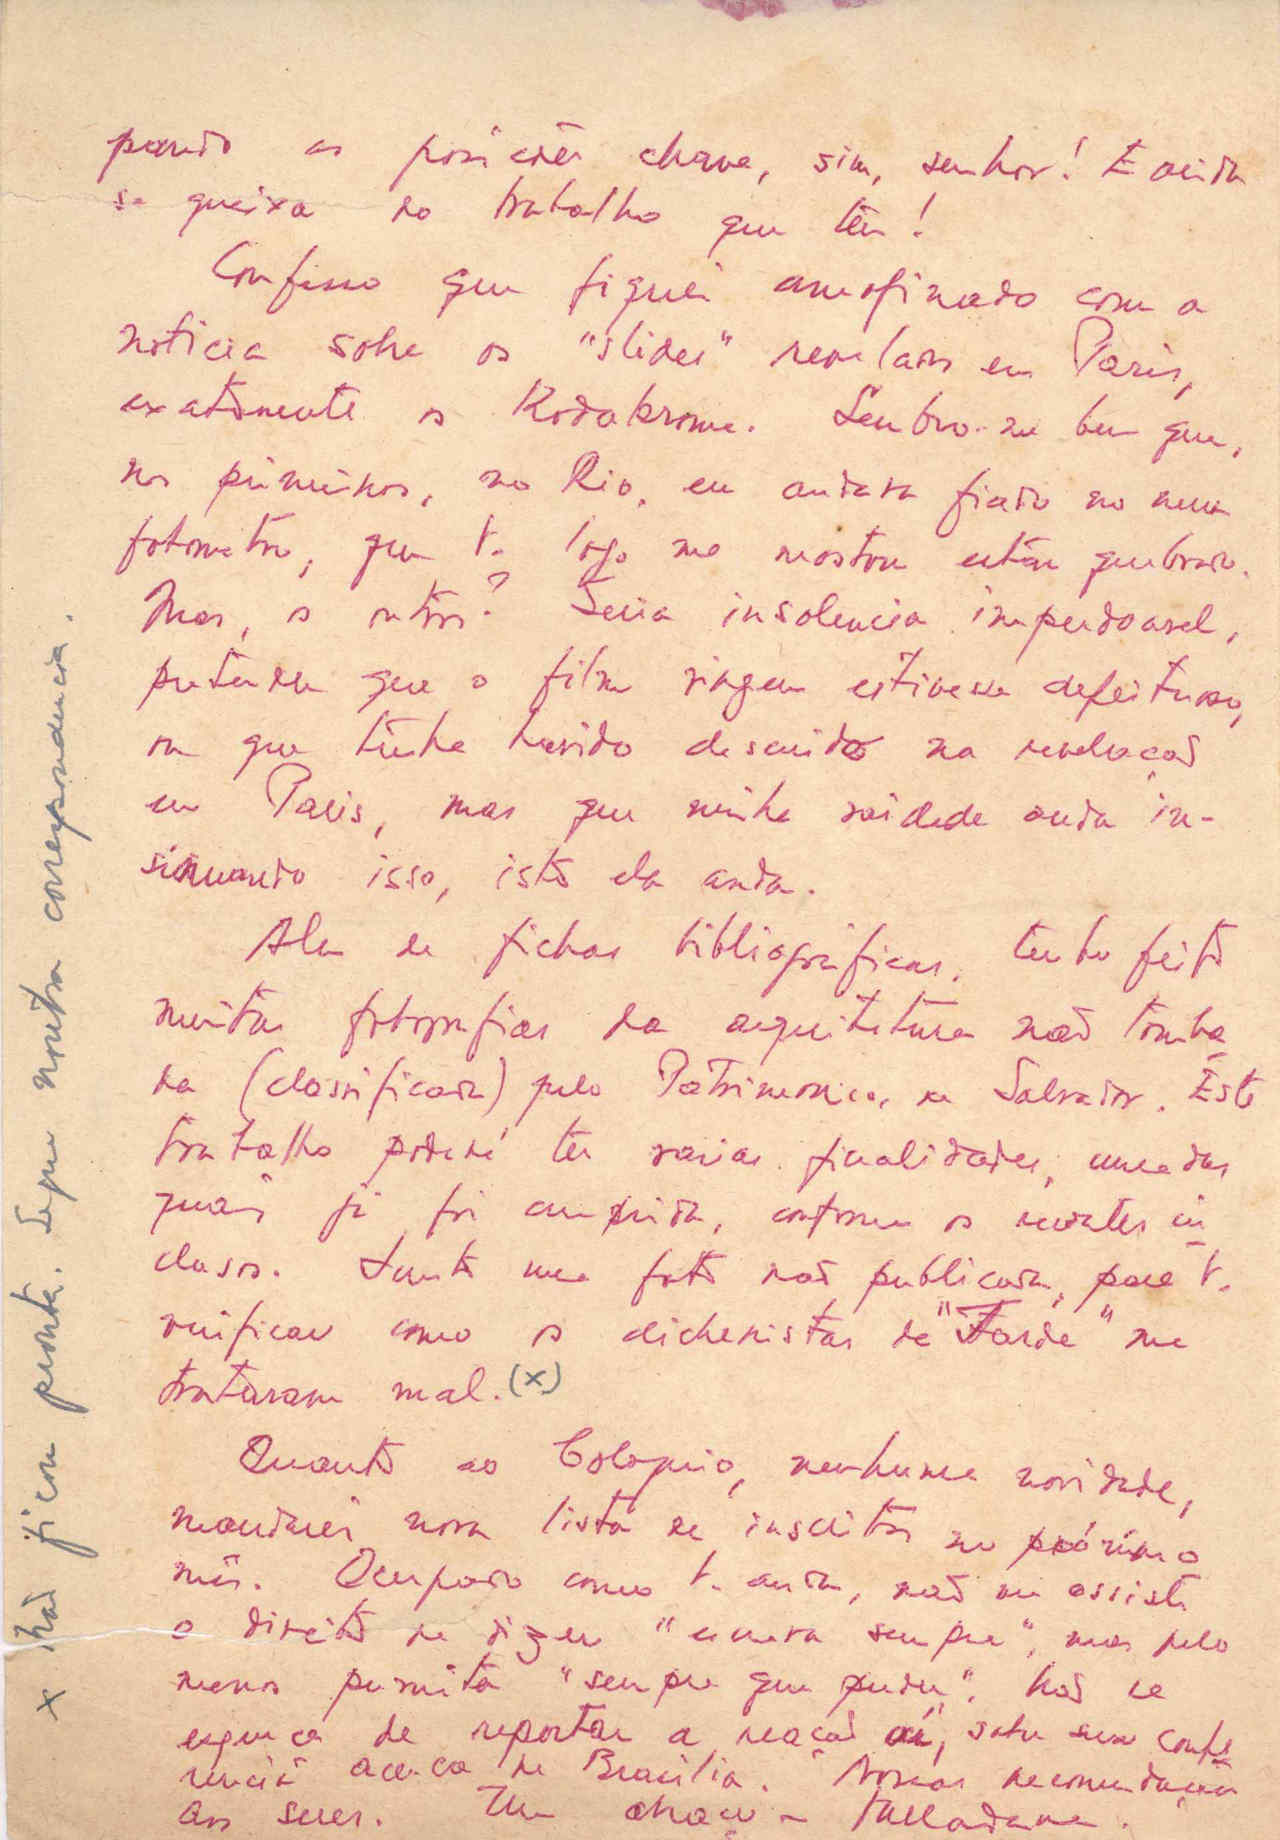 pando as posições chave, sim, senhor! E ainda
se queixa do trabalho que tem!
Confesso que fiquei amofinado com a
noticia sobre os "slides" revelados em Paris,
exatamente os Kodakrome. Lembro-me bem que,
nos primeiros, no Rio, eu andava fiado no meu
fotometro, que V. logo me mostrou estar quebrado.
Mas, os outros? Seria insolencia imperdoavel,
pretender que o film virgem estivesse defeituoso,
ou que tinha havido descuido na revelação
em Paris, mas que minha vaidade anda in-
sinuando isso, isto ela anda.
Alem de fichas bibliograficas, tenho feito
muitas fotografias da arquitetura não tomba
da (classificada) pelo Patrimonio, de Salvador. Este
trabalho poderá ter varias finalidades, uma das
quais já foi cumprida, conforme os recortes in
clusos. Junto uma foto não publicada, para V.
verificar como os clichenistas de "Tarde" me
trataram mal. (x)
Quanto ao Coloquio, nenhuma novidade,
mandarei nova lista de inscritos no próximo
mês. Ocupado como V. anda, não me assiste
o direito de dizer "escreva sempre", mas pelo
menos permita "sempre que puder". Não se
esqueça de reportar a reação aí, sobre sua confe
rencia acerca de Brasilia. Nossas recomendações
aos seus. Um abraço - Valladares.
x Não ficou pronta. Segue noutra correspondencia.